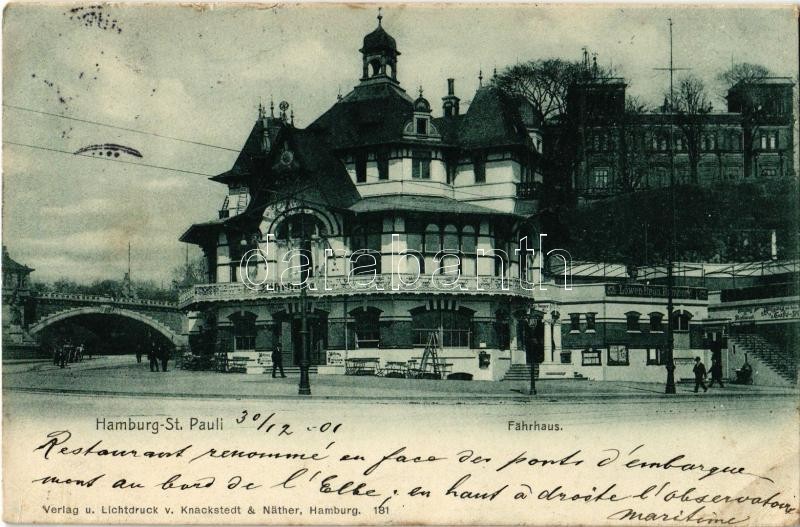 darabanth
Fährhaus
Hamburg-St. Pauli 30/12 -01
Fährhaus.
Restaurant renommé en face des ponts d'embarque-
ment au bord de l'Elbe; en haut à droite l'observatoire
maritime
Verlag u. Lichtdruck v. Knackstedt & Näther, Hamburg. 181